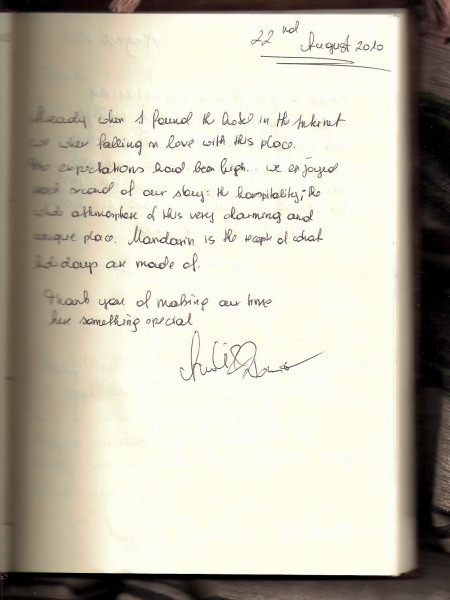 22nd August 2010
Already when I found the hotel in the Internet
we wher falling in love with this place.
The expectations had been high... we enjoyed
each second of our stay: the hospitality, the
whole athmosphere of this very charming and
unique place. Mandarin is the of what
holidays are made of.
Thank you of making our time
here something special